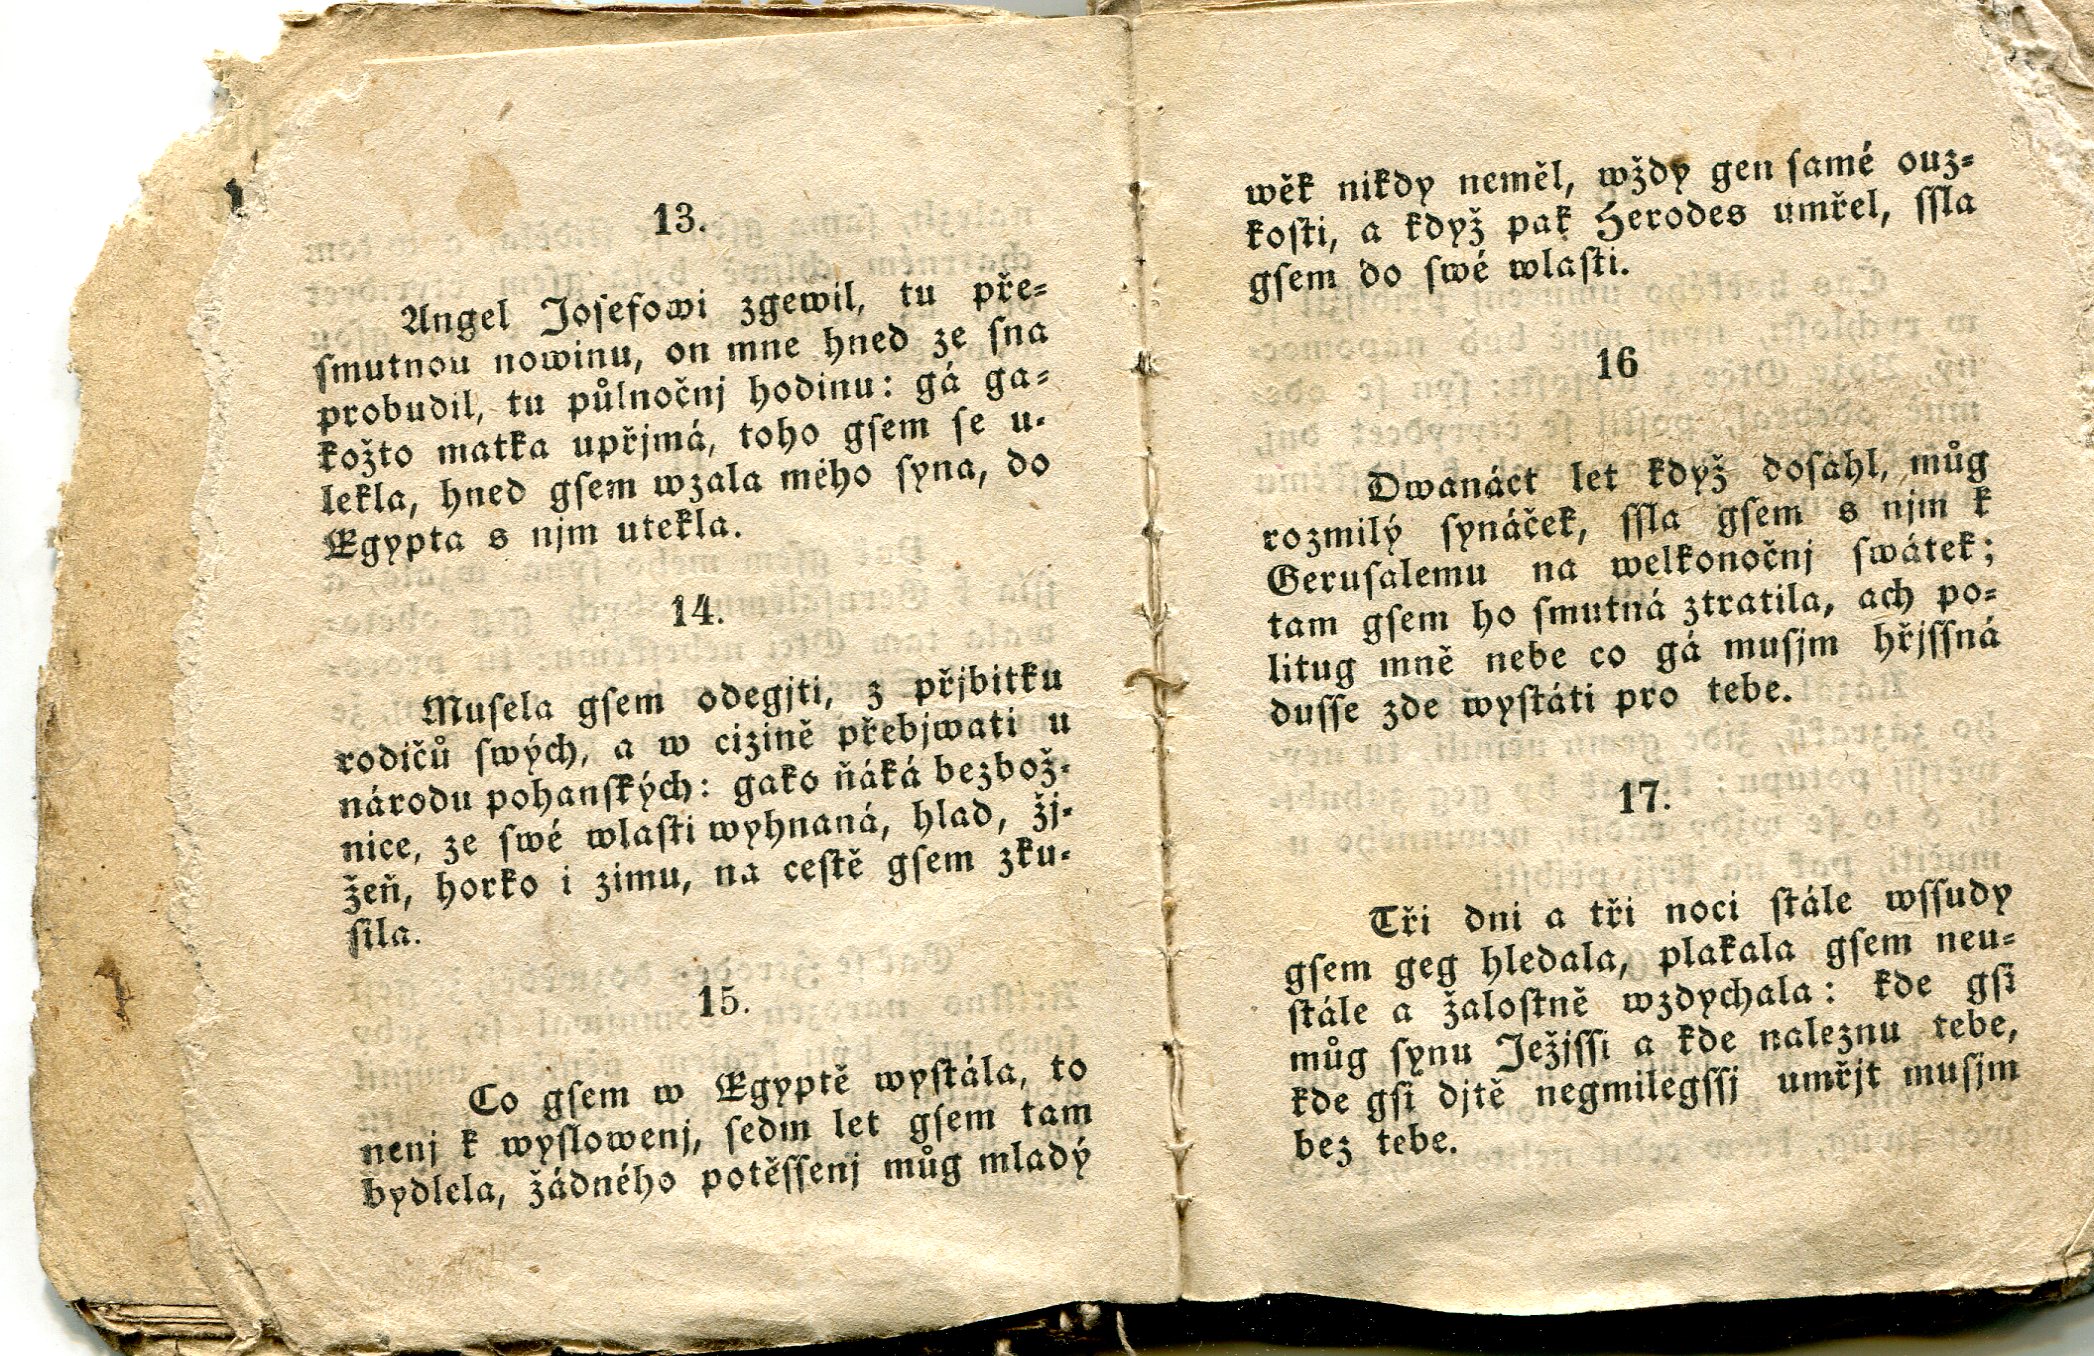 13.
Angel Joſefowi zgewil, tu pře⸗
ſmutnou nowinu, on mne hned ze ſna
probudil, tu půlnočnj hodinu: gá ga⸗
kožto matka upřjmá, toho gſem ſe u⸗
lekla, hned gſem wzala mého ſyna, do
Egypta s njm utekla.
14.
Muſela gſem odegjti, z přjbitku
rodičů ſwých, a w cizině přebjwati u
národu pohanſkých: gako ňáká bezbož⸗
nice, ze ſwé wlaſti wyhnaná, hlad, žj⸗
žeň, horko i zimu, na ceſtě gſem zku⸗
ſila.
15.
Co gſem w Egyptě wyſtála, to
nenj k wyſlowenj, ſedm let gſem tam
bydlela, žádného potěſſenj můg mladý
wěk nikdy neměl, wždy gen ſamé ouz⸗
koſti, a když pak Herodes umřel, ſſla
gſem do ſwé wlaſti.
16
Dwanáct let když doſáhl, můg
rozmilý ſynáček, ſſla gſem s njm k
Geruſalemu na welkonočnj ſwátek;
tam gſem ho ſmutná ztratila, ach po⸗
litug mně nebe co gá muſjm hřjſſná
duſſe zde wyſtáti pro tebe.
17.
Tři dni a tři noci ſtále wſſudy
gſem geg hledala, plakala gſem neu⸗
ſtále a žaloſtně wzdychala: kde gſi
můg ſynu Ježjſſi a kde naleznu tebe,
kde gſi djtě negmilegſſj umřjt muſjm
bez tebe.